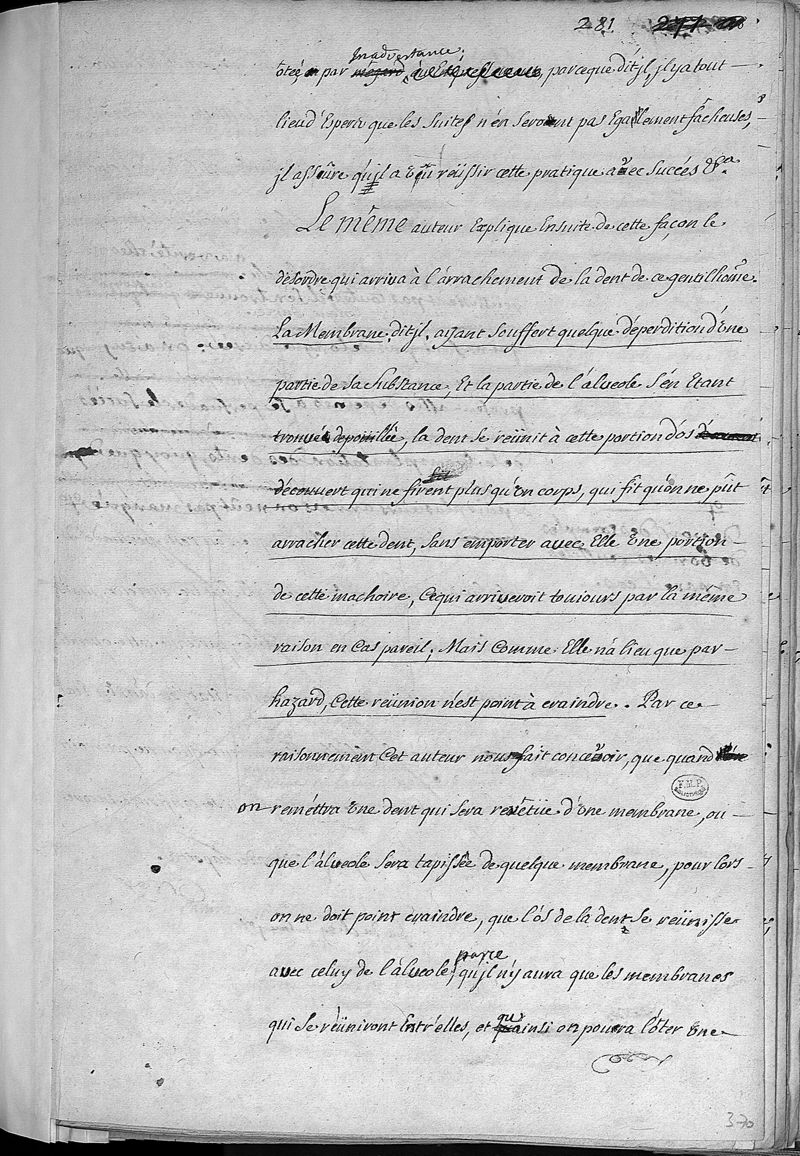 281
Inadvertance,
otée par mégard, parceque dit-jl, jl ya tout
lieu d'Esperer que les Suites n'en seront pas Egallement fâcheuses,
jl assure qu'jl a vû réüssir cette pratique avec succés &.a
Le même auteur Explique Ensuite de cette façon le
désordre qui arriva à l'arrachement de la dent de ce gentilhom̃e.
La Membrane, dit-jl, ayant souffert quelque déperdition d'une
partie de sa substance, Et la partie de l'alveole s'en Etant
trouvée depoüillée, la dent se réünit à cette portion d'os
découvert qui ne firent plus qu'un corps, qui fit qu'on ne pût
arracher cette dent, sans emporter avec Elle une portion
de cette machoire, Ce qui arriveroit toujours par la même
raison en Cas pareil; Mais Comme Elle n'a lieu que par
hazard, Cette reünion n'est point à craindre. Par ce
raisonnement Cet auteur nous fait concevoir, que quand
F.M.P.
on remettra une dent qui sera revêtüe d'une membrane, ou
que l'alveole sera tapissée de quelque membrane, pour lors
on ne doit point craindre, que l'ôs de la dent se reünisse
parce
avec celuy de l'alveole, qu'jl n'y aura que les membranes
qui se réüniront Entr'elles, et qu'ainsi on pourra l'ôter une
370